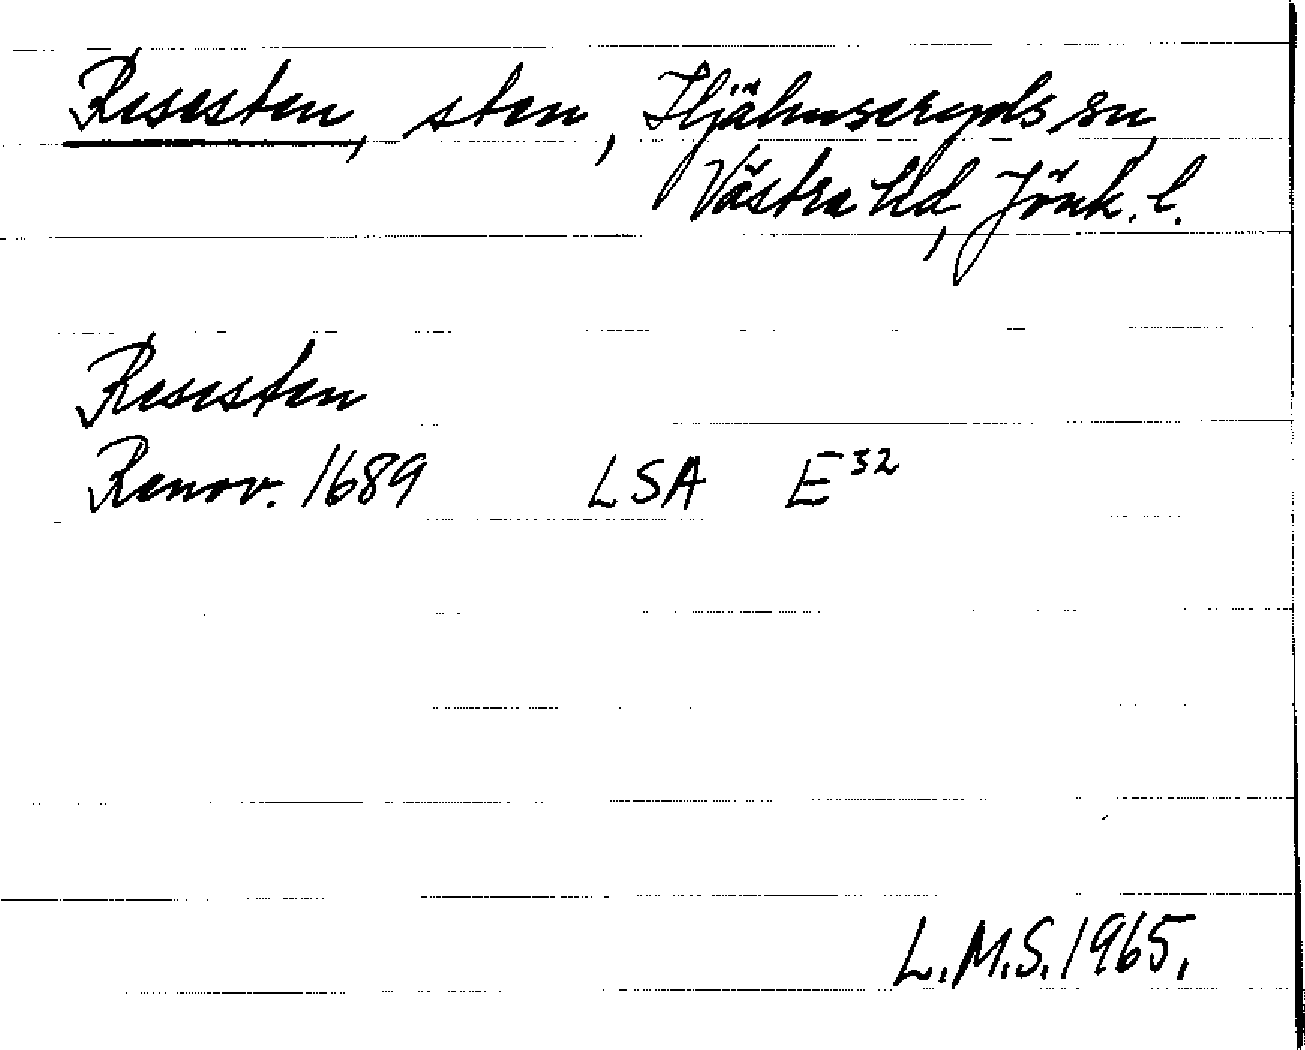 Resesten, sten, Hjälmseryds sn,
Västra hd, Jönk. l.
Resesten
Renov. 1689 LSA E32
L.M.S. 1965.